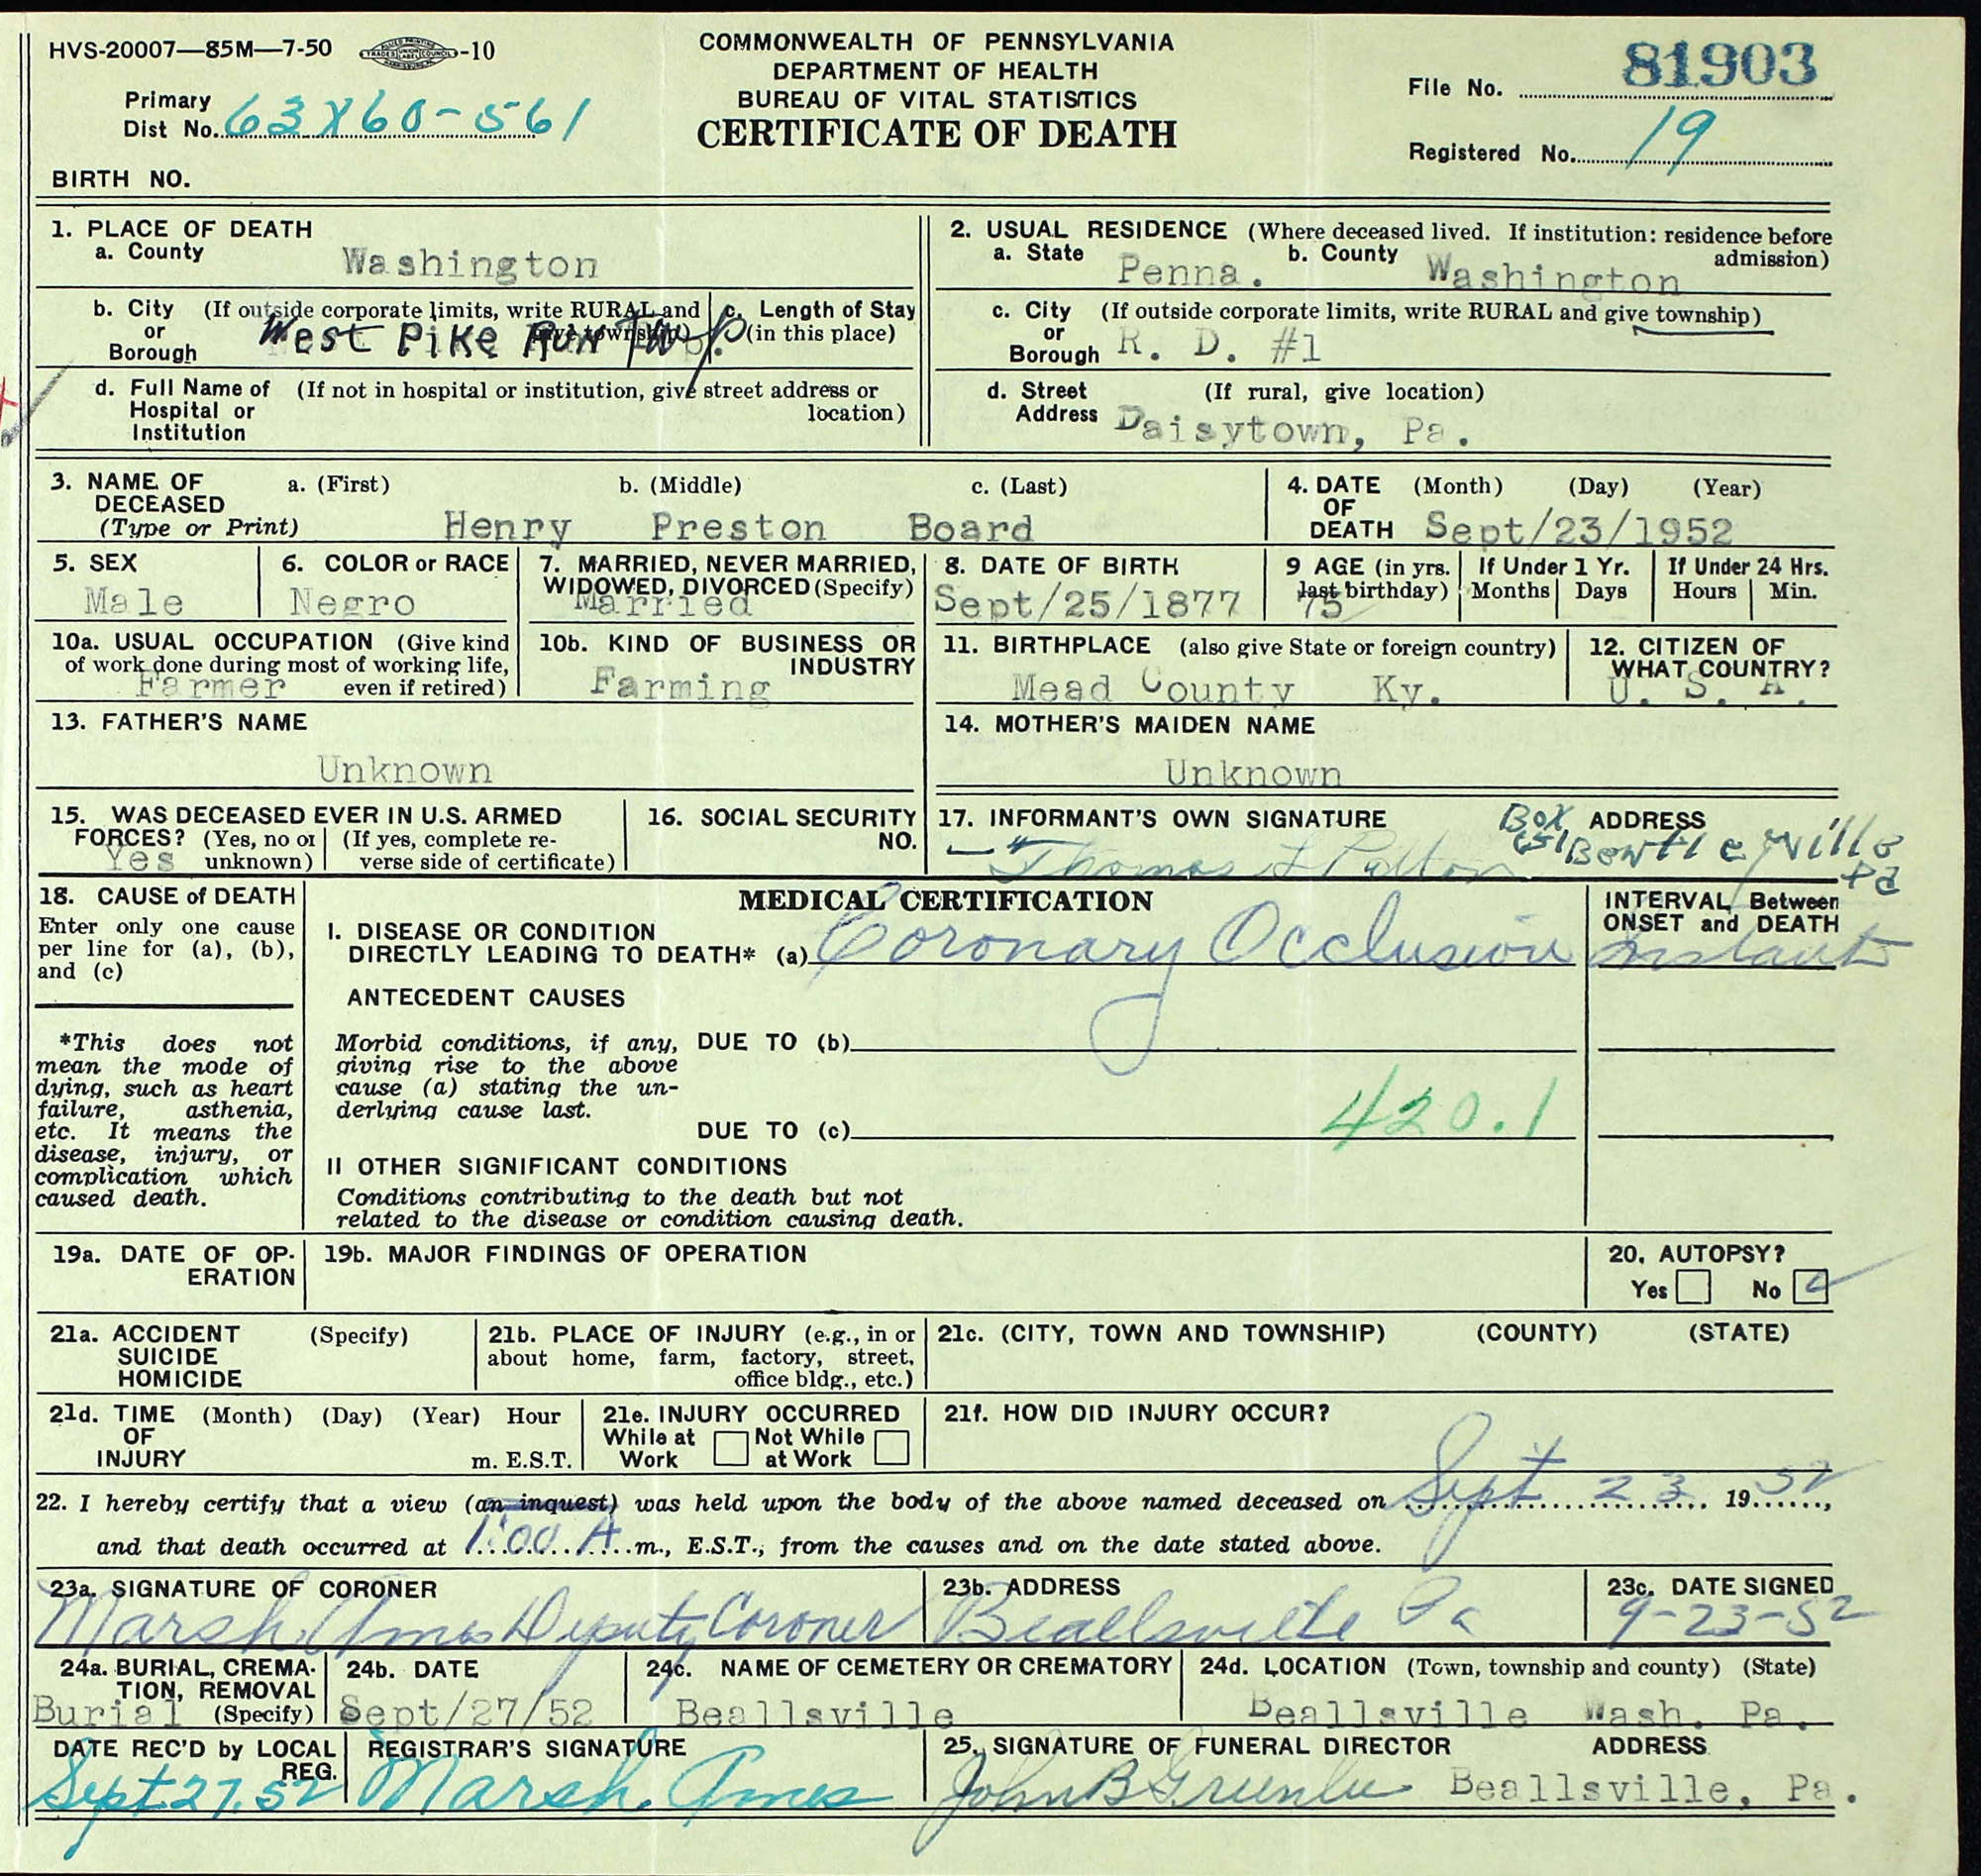 HVS-20007—85M—7-50 -10
COMMONWEALTH OF PENNSYLVANIA
DEPARTMENT OF HEALTH
BUREAU OF VITAL STATISTICS
CERTIFICATE OF DEATH
File No. 81903
Primary
Dist No. 63X60-561
Registered No. 19
BIRTH NO.
1. PLACE OF DEATH
a. County Washington
b. City (If outside corporate limits, write RURAL and
or give township)
Borough West Pike Run Twp.
c. Length of Stay
(in this place)
d. Full Name of (If not in hospital or institution, give street address or
Hospital or location)
Institution
2. USUAL RESIDENCE (Where deceased lived. If institution: residence before
admission)
a. State Penna. b. County Washington
c. City (If outside corporate limits, write RURAL and give township)
or
Borough R. D. #1
d. Street (If rural, give location)
Address Daisytown, Pa.
3. NAME OF a. (First) b. (Middle) c. (Last)
DECEASED
(Type or Print) Henry Preston Board
4. DATE (Month) (Day) (Year)
OF
DEATH Sept/23/1952
5. SEX
Male
6. COLOR or RACE
Negro
7. MARRIED, NEVER MARRIED,
WIDOWED, DIVORCED (Specify)
Married
8. DATE OF BIRTH
Sept/25/1877
9 AGE (in yrs.
last birthday)
75
If Under 1 Yr.
Months Days
If Under 24 Hrs.
Hours Min.
10a. USUAL OCCUPATION (Give kind
of work done during most of working life,
Farmer even if retired)
10b. KIND OF BUSINESS OR
INDUSTRY
Farming
11. BIRTHPLACE (also give State or foreign country)
Mead County Ky.
12. CITIZEN OF
WHAT COUNTRY?
U. S. A.
13. FATHER'S NAME
Unknown
14. MOTHER'S MAIDEN NAME
Unknown
15. WAS DECEASED EVER IN U.S. ARMED
FORCES? (Yes, no or (If yes, complete re-
Yes unknown) verse side of certificate)
16. SOCIAL SECURITY
NO.
17. INFORMANT'S OWN SIGNATURE ADDRESS
Thomas Box Bentleyville
Pa
18. CAUSE of DEATH
Enter only one cause
per line for (a), (b),
and (c)
*This does not
mean the mode of
dying, such as heart
failure, asthenia,
etc. It means the
disease, injury, or
complication which
caused death.
MEDICAL CERTIFICATION
I. DISEASE OR CONDITION
DIRECTLY LEADING TO DEATH* (a) Coronary Occlusion
ANTECEDENT CAUSES
Morbid conditions, if any, DUE TO (b)
giving rise to the above
cause (a) stating the un-
derlying cause last.
DUE TO (c) 420.1
II OTHER SIGNIFICANT CONDITIONS
Conditions contributing to the death but not
related to the disease or condition causing death.
INTERVAL Between
ONSET and DEATH
19a. DATE OF OP-
ERATION
19b. MAJOR FINDINGS OF OPERATION
20. AUTOPSY?
Yes No
21a. ACCIDENT (Specify)
SUICIDE
HOMICIDE
21b. PLACE OF INJURY (e.g., in or
about home, farm, factory, street,
office bldg., etc.)
21c. (CITY, TOWN AND TOWNSHIP) (COUNTY) (STATE)
21d. TIME (Month) (Day) (Year) Hour
OF
INJURY m. E.S.T.
21e. INJURY OCCURRED
While at Not While
Work at Work
21f. HOW DID INJURY OCCUR?
22. I hereby certify that a view (an inquest) was held upon the body of the above named deceased on Sept 23 1952,
and that death occurred at 1:00 A m., E.S.T., from the causes and on the date stated above.
23a. SIGNATURE OF CORONER
Marsh. Ames Deputy Coroner
23b. ADDRESS
Beallsville Pa
23c. DATE SIGNED
9-23-52
24a. BURIAL, CREMA-
TION, REMOVAL
Burial (Specify)
24b. DATE
Sept/27/52
24c. NAME OF CEMETERY OR CREMATORY
Beallsville
24d. LOCATION (Town, township and county) (State)
Beallsville Wash. Pa.
DATE REC'D by LOCAL
REG.
Sept 27, 52
REGISTRAR'S SIGNATURE
Marsh. Ames
25. SIGNATURE OF FUNERAL DIRECTOR ADDRESS
John B Greenlee Beallsville, Pa.